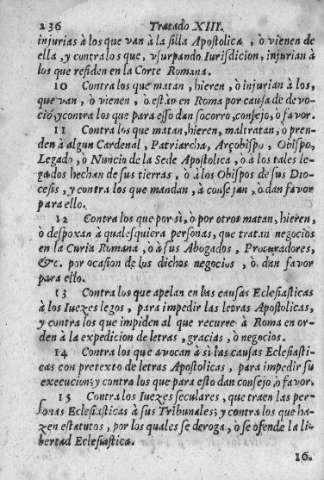 236 Tratado XIII.
injurias à los que van à la silla Apostolica, ò vienen de
ella, y contra los que, vsurpando Iurisdicion, injurian à
los que residen en la Corte Romana.
10 Contra los que matan, hieren, ò injurian à los,
que van, ò vienen, ò estan en Roma por causa de devo-
ció, y contra los que para esso dan socorro, consejo, ò favor.
11 Contra los que matan, hieren, maltratan, ò pren-
den à algun Cardenal, Patriarcha, Arçobispo, Obispo,
Legado, ò Nuncio de la Sede Apostolica, ò à los tales le-
gados hechan de sus tierras, ò à los Obispos de sus Dio-
cesis, y contra los que mandan, à consejan, ò dan favor
para ello.
12 Contra los que por si, ò por otros matan, hieren,
ò despoxan à qualesquiera personas, que tratan negocios
en la Curia Romana, ò à sus Abogados, Procuradores,
&c. por ocasion de los dichos negocios, ò dan favor
para ello.
13 Contra los que apelan en las causas Eclesiasticas
à los Iuezes legos, para impedir las letras Apostolicas,
y contra los que impiden al que recurre à Roma en or-
den à la expedicion de letras, gracias, ò negocios.
14 Contra los que avocan à si las causas Eclesiasti-
cas con pretexto de letras Apostolicas, para impedir su
execucion; y contra los que para esto dan consejo, ò favor.
15 Contra los Iuezes seculares, que traen las per-
sonas Eclesiasticas à sus Tribunales; y contra los que ha-
zen estatutos, por los quales se deroga, ò se ofende la li-
bertad Eclesiastica.
16.